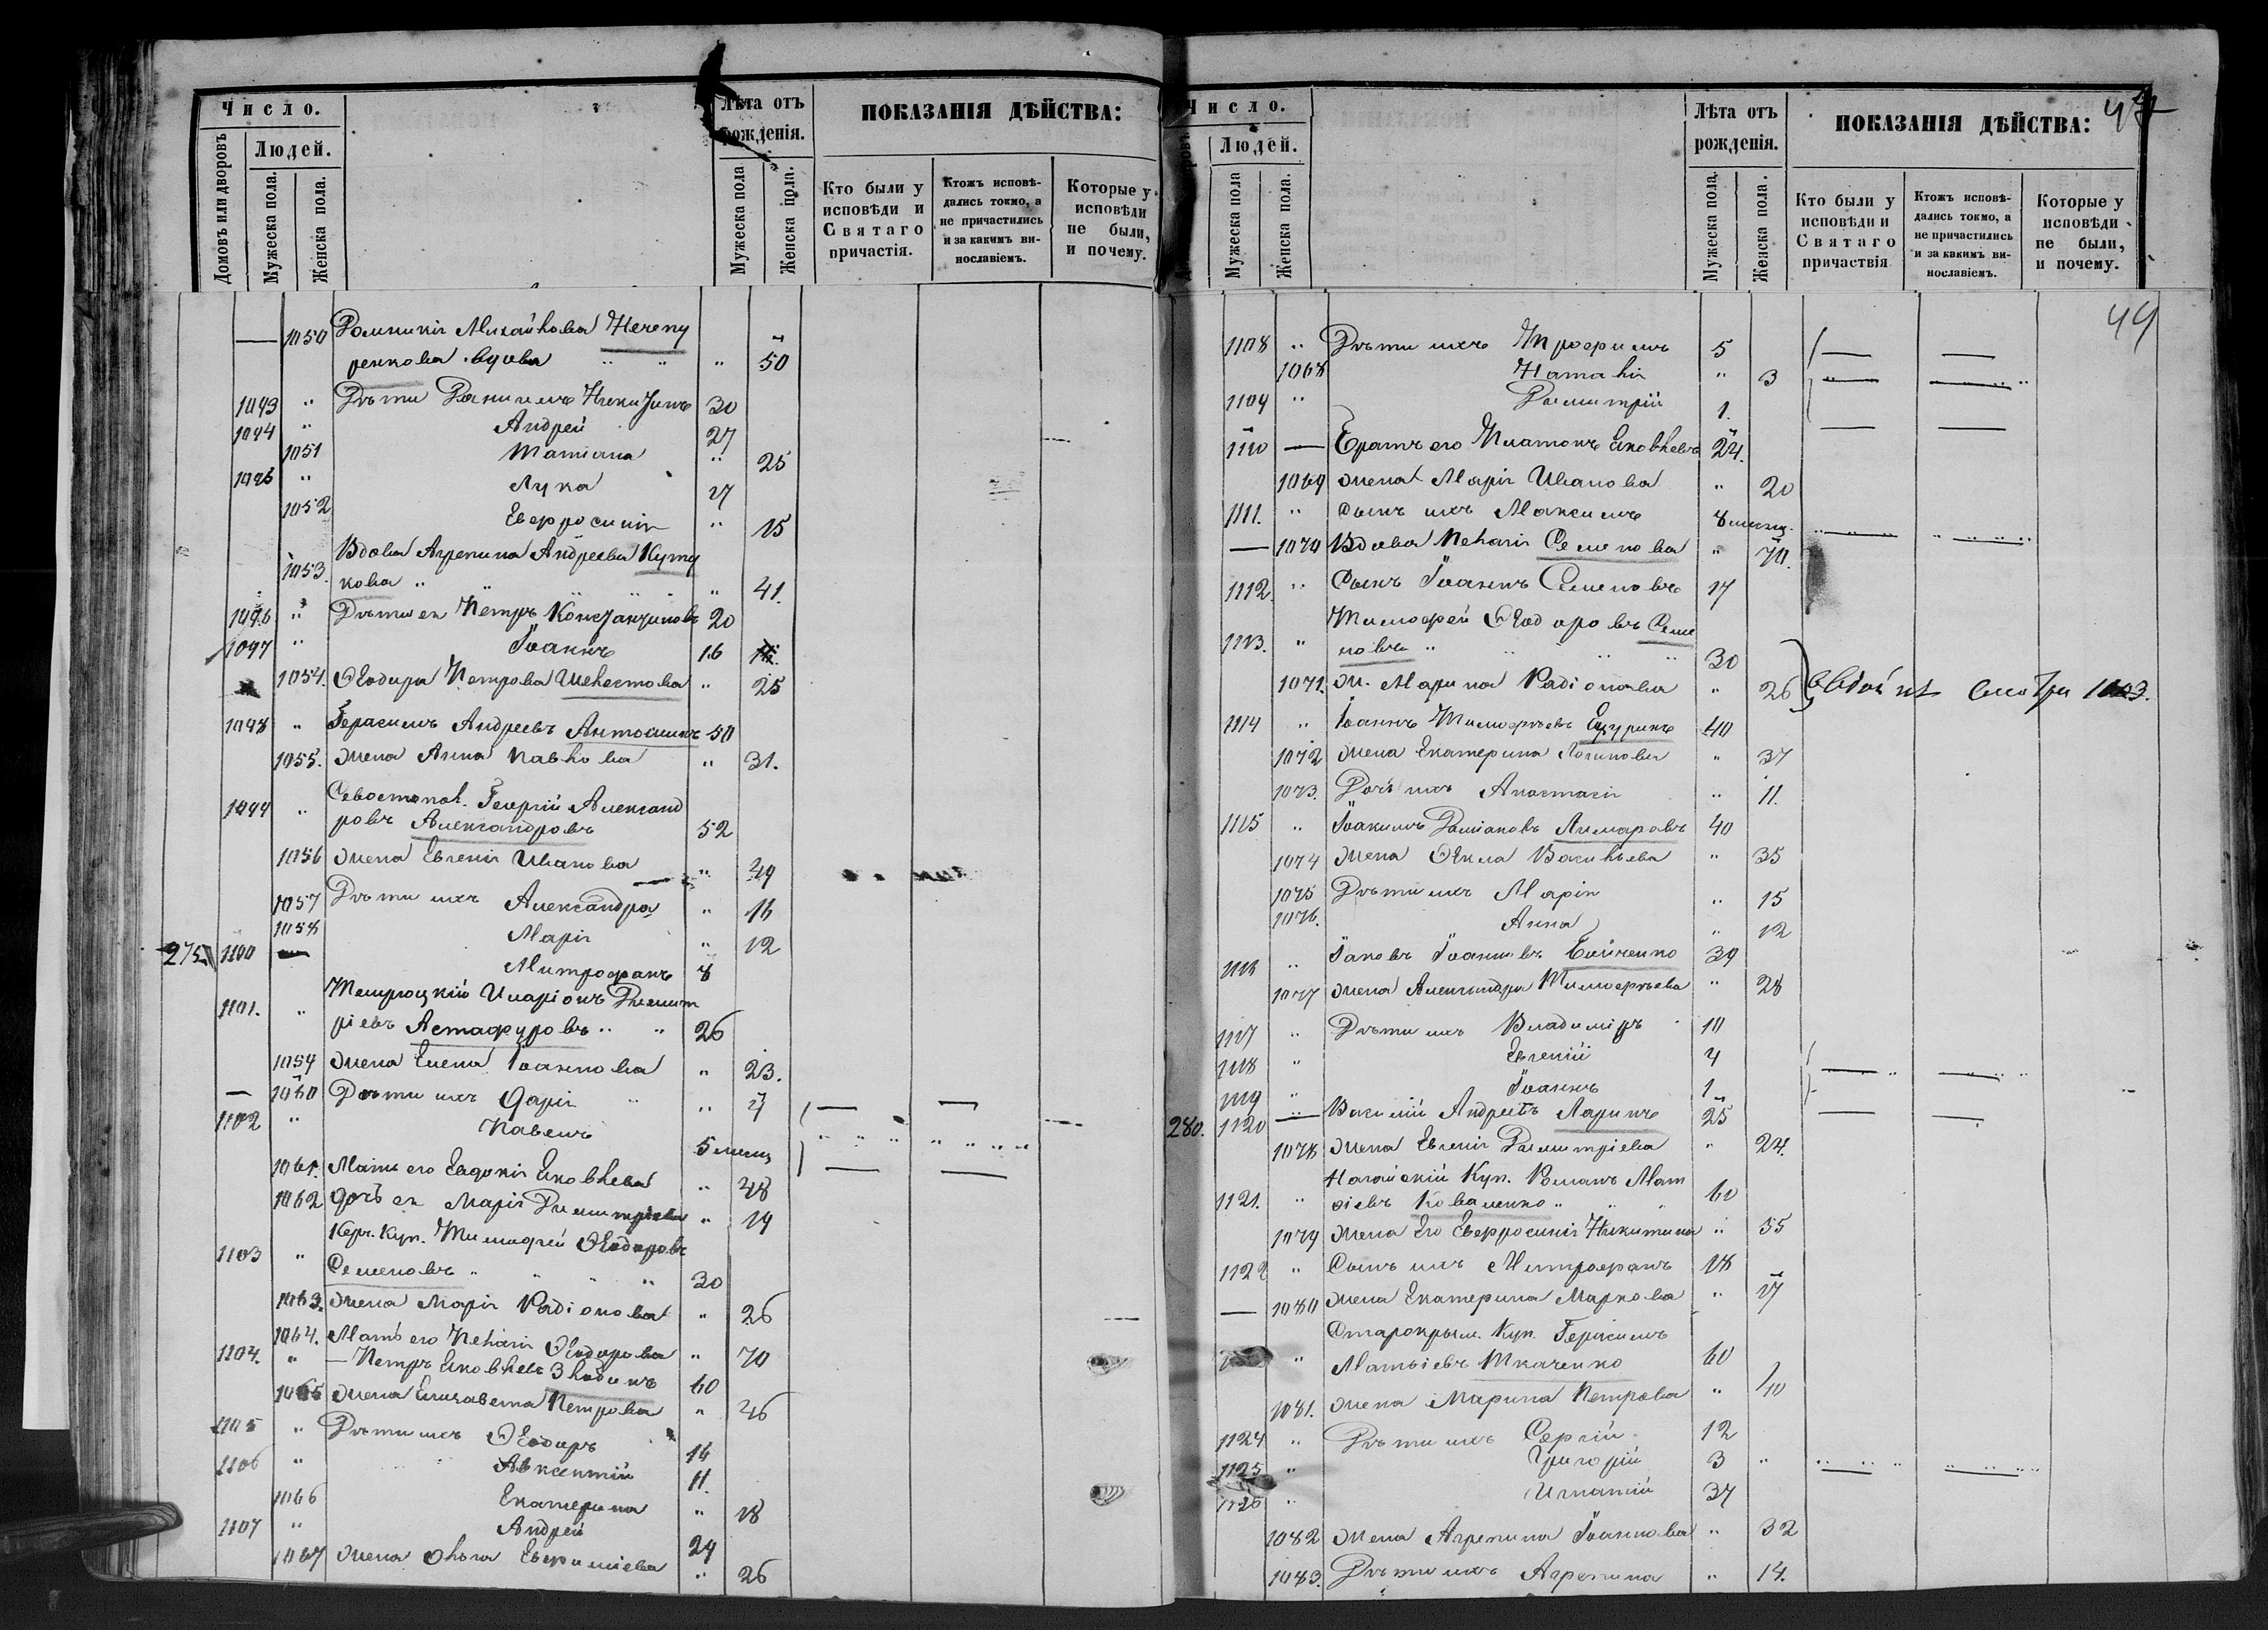 Число.
Людей.
Домовъ или дворовъ
Мужеска пола.
Женска пола.
Лѣта отъ
рожденія.
Мужеска пола
Женска пола.
ПОКАЗАНІЯ ДѢЙСТВА:
Кто были у
исповѣди и
Святаго
причастія.
Ктожъ исповѣ-
дались токмо, а
не причастились
и за какимъ ви-
нословіемъ.
Которые у
исповѣди
не были,
и почему.
— 1050
вдова " " " 50
1093 " Дѣти Даніилъ Никитинъ 30
1094 " Андрей 27
1051 Татіана " 25
" Лука 17
1052 Евфросинія " 15
Вдова Агрепина Андреева
1053. кова " " " 41.
1096 " Дѣти ея Петръ Константиновъ 20
1097 " Іоаннъ 16
1054. Ѳеодора Петрова Шелестова " 25
1098 " Герасимъ Андреевъ Антошинъ 50
1055. жена Анна Павлова " 31.
Севастопол. Георгій Александ
1099 " ровъ Александровъ 52
1056 жена Евгенія Иванова " 49
1057 Дѣти ихъ Александра " 16
1058 Марія " 12
275 1100 — Митрофанъ 8
Темрюцкій Иларіонъ Димит
1101. " ріевъ Астафуровъ " " 26
1059 жена Елена Іоаннова " 23.
— 1060 Дѣти ихъ Дарія " " 4
1102 " Павелъ 5 месяц
1061. Мать его Евдокія Яковлева " 48
1062 дочь ея Марія Димитріева " 19
Керч. Куп. Тимофей Ѳеодоровъ
1103 " Семеновъ " " " " 30
1063. жена Марія Радіонова " 26
1064. Мать его Пелагія Ѳеодорова " 70
1104. " — Петръ Яковлевъ Злодинъ 60
1065 жена Елисавета Петрова " 46
1105 " Дѣти ихъ Ѳеодоръ 16
1106 " Авксентій 11.
1066 Екатерина " 18
1107 " Андрей 29
1067 жена Ольга Евфиміева " 26
Число.
Людей.
Мужеска пола
Женска пола.
Лѣта отъ
рожденія.
Мужеска пола.
Женска пола.
ПОКАЗАНІЯ ДѢЙСТВА:
Кто были у
исповѣди и
Святаго
причаствія
Ктожъ исповѣ-
дались токмо, а
не причастились
и за какимъ ви-
нославіемъ.
Которые у
исповѣди
не были,
и почему.
49
1108 " Дѣти ихъ Трофимъ 5
1068 Наталія " 3
1109 " Димитрій 1.
1110 — Братъ его Платонъ Яковлевъ 24.
1069 жена Марія Иванова " 20
1111. " Сынъ ихъ Максимъ 8 месяц.
— 1070 Вдова Пелагія Семенова " 70.
1112. " Сынъ Іоаннъ Семеновъ 17
Тимофей Ѳеодоровъ Семе
1113. " новъ " " " " 30
1071. ж. Марина Радіонова " 26 } смотри 1103.
1114 " Іоаннъ Тимофѣевъ 40
1072 жена Екатерина Логинова " 37
1073. Дочь ихъ Анастасія " 11.
1115 " Іоакимъ Даміановъ Лимаровъ 40
1074 жена Ѳекла Васильева " 35
1075 Дѣти ихъ Марія " 15
1076. Анна " 12
1116 " Іаковъ Іоанновъ Бойченко 39
1077 жена Александра Тимофѣева " 28
1117 " Дѣти ихъ Владиміръ 10
1118 " Евгеній 4
1119 " Іоаннъ 1
280. 1120 — Василій Андреевъ Ларинъ 25
1078 жена Евгенія Димитріева " 24.
Нагайскій Куп. Романъ Мат
1121. " ѳіевъ Коваленко " " " 60
1079 жена Его Евфросинія Никитина " 55
1122 " Сынъ ихъ Митрофанъ 18
— 1080 жена Екатерина Маркова " 17
Старокрым. Куп. Герасимъ
" Матвіевъ Ткаченко 60
1081. жена Марина Петрова " 40
1124 " Дѣти ихъ Сергій 12
1125 " Григорій 3 "
1126 " Игнатій 37
1082 жена Агрепина Іоаннова " 32
1083. Дѣти ихъ Агрепина " 14.